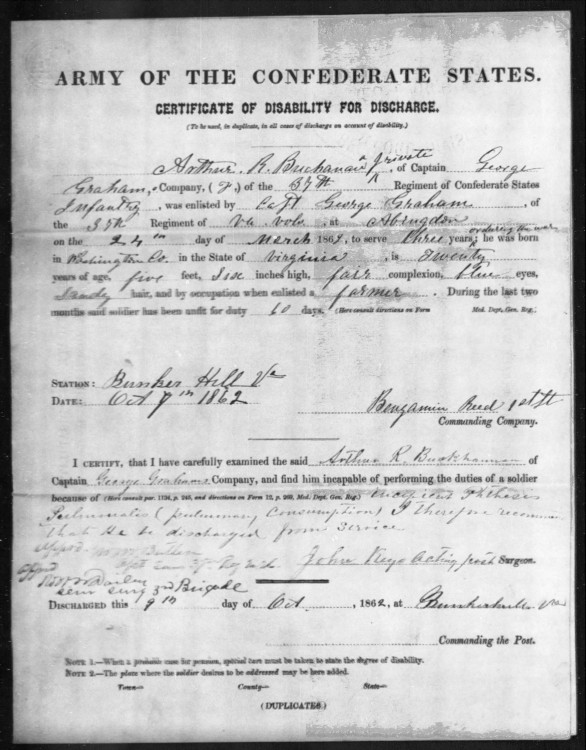 ARMY OF THE CONFEDERATE STATES.
CERTIFICATE OF DISABILITY FOR DISCHARGE.
(To be used, in duplicate, in all cases of discharge on account of disability.)
Arthur R. Buchanan a private, of Captain George
Graham, Company, ( ) of the 37th Regiment of Confederate States
Infantry, was enlisted by Capt George Graham, of
the 37th Regiment of Va vols, at Abingdon
on the 24th day of March 186 , to serve three years or during the war; he was born
in Washington Co. in the State of Virginia, is twenty
years of age, five feet, six inches high, fair complexion, blue eyes,
Sandy hair, and by occupation when enlisted a farmer. During the last two
months said soldier has been unfit for duty 60 days. (Here consult directions on Form Med. Dept. Gen. Reg.)
STATION: Bunker Hill Va
DATE: Oct 9th 1862
Benjamin Reed 1st Lt
Commanding Company.
I CERTIFY, that I have carefully examined the said Arthur R Buckhannan of
Captain George Grahams Company, and find him incapable of performing the duties of a soldier
because of (Here consult par. 1134, p. 248, and directions on Form 12, p. 269, Med. Dept. Gen. Reg.) Incipient Phthisis
Pulmonalis (pulmonary consumption) I therefore recommend
that he be discharged from service
John Keys Acting post Surgeon.
Appvd
Senr Surg 3rd Brigade
DISCHARGED this 9th day of Oct, 1862, at Bunkerhill Va
Commanding the Post.
NOTE 1.—When a probable case for pension, special care must be taken to state the degree of disability.
NOTE 2.—The place where the soldier desires to be addressed may be here added.
Town— County— State—
(DUPLICATES)